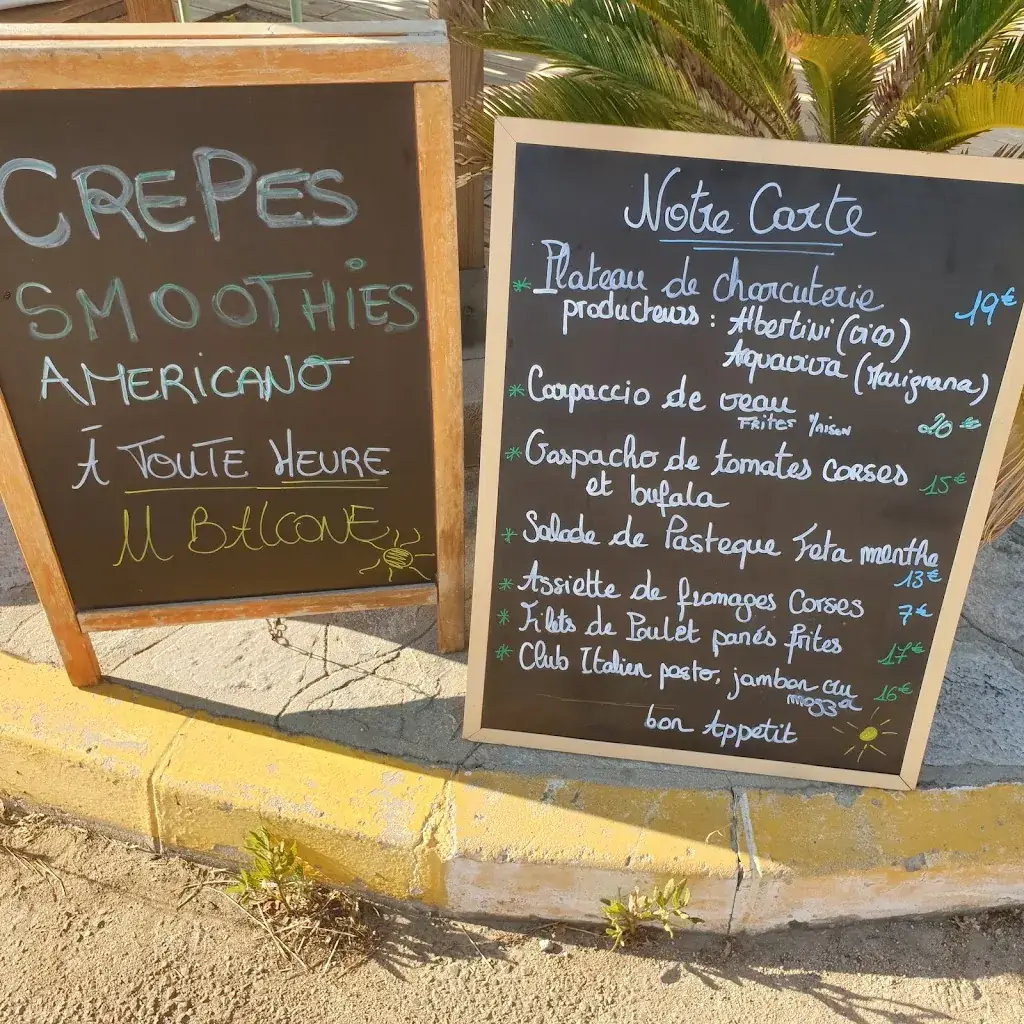 CREPES
SMOOTHIES
AMERICANO
À TOUTE HEURE
U BALCONE
Notre Carte
* Plateau de charcuterie 19€
producteurs : Albertini (Vico)
Aquaviva (Marignana)
* Carpaccio de veau
FRITES Maison 20€
* Gaspacho de tomates corses 15€
et bufala
* Salade de Pasteque Feta menthe
13€
* Assiette de fromages Corses 7€
* Filets de Poulet panés frites 17€
* Club Italien pesto, jambon cru 16€
mozza
bon Appetit